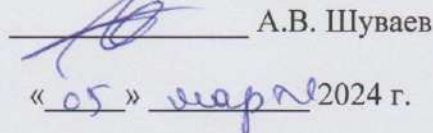 А.В. Шуваев
«05» марта 2024 г.